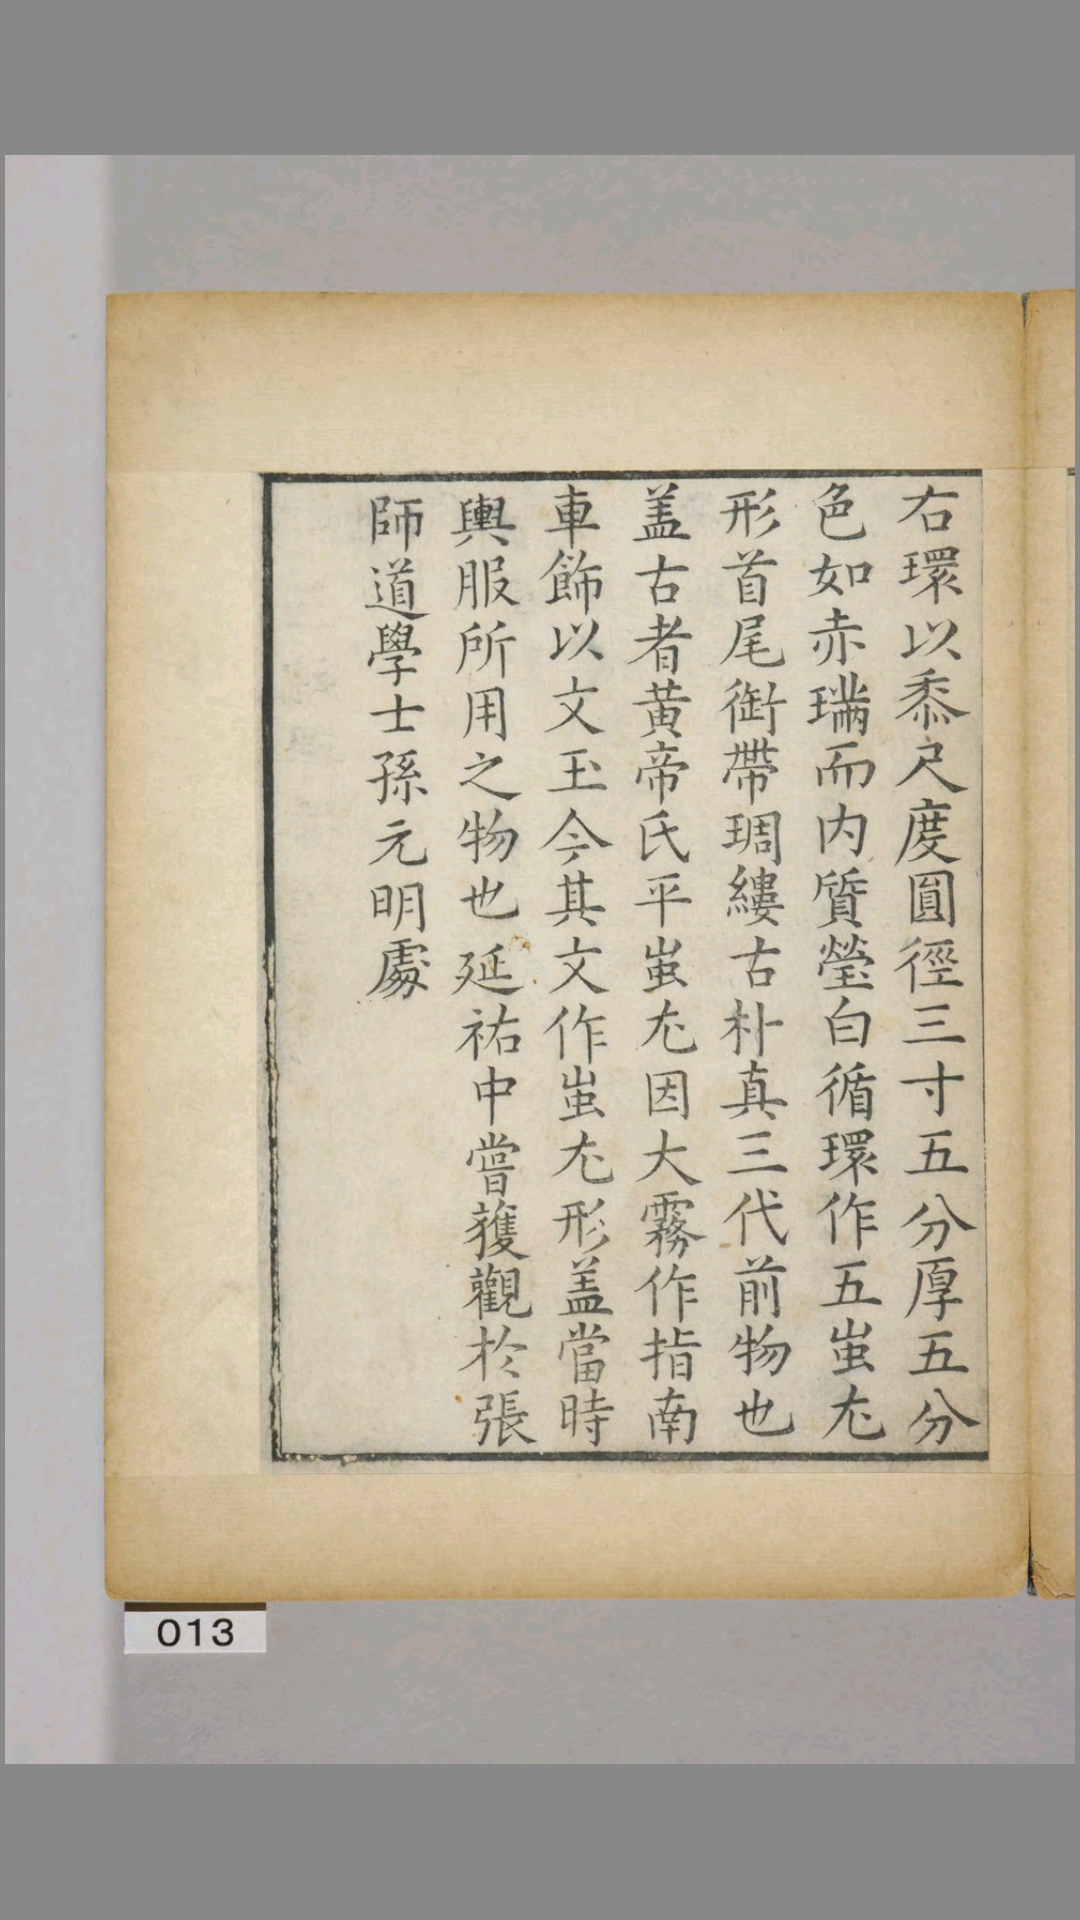 右環以黍尺度圓徑三寸五分厚五分
色如赤璊而内質瑩白循環作五蚩尤
形首尾銜帶琱縷古朴真三代前物也
盖古者黄帝氏平蚩尤因大霧作指南
車飾以文玉今其文作蚩尤形盖當時
輿服所用之物也延祐中嘗獲觀於張
師道學士孫元明處
013